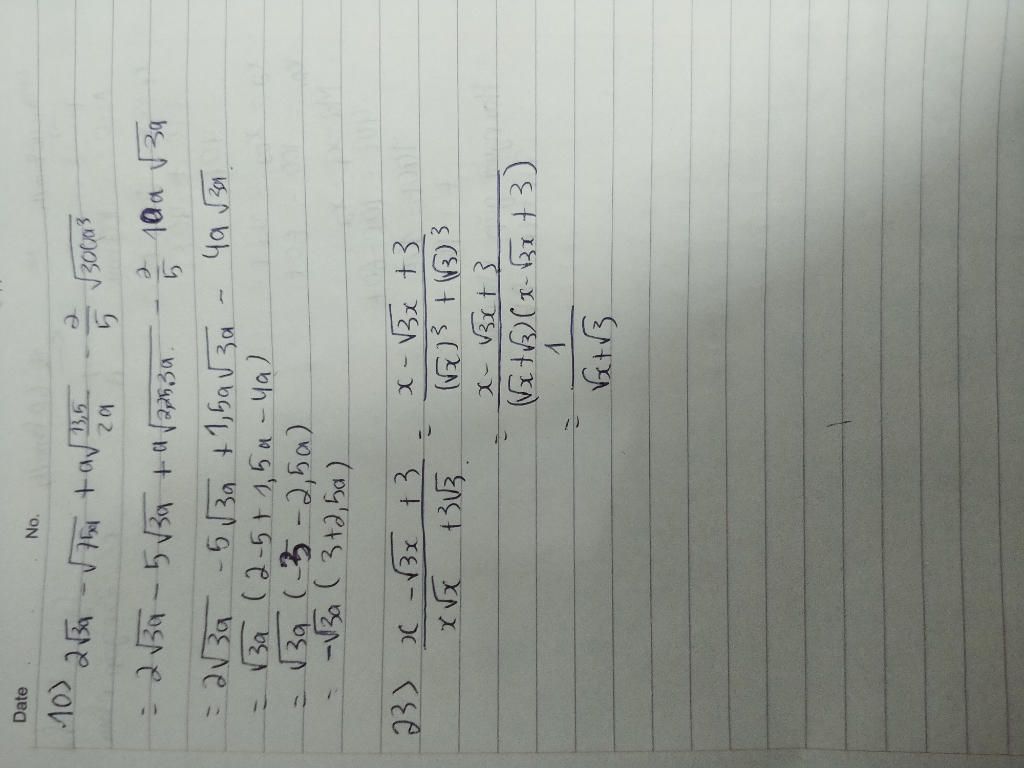 Date No.
10) 2√3a - √75a + a√(13,5/2a) - 2/5 √300a³
= 2√3a - 5√3a + a√2,25.3a - 2/5 10a √3a
= 2√3a - 5√3a + 1,5a√3a - 4a√3a
= √3a (2-5+1,5a-4a)
= √3a (-3-2,5a)
= -√3a (3+2,5a)
23) (x - √3x + 3)/(x√x + 3√3) = (x - √3x + 3)/((√x)³ + (√3)³)
= (x - √3x + 3)/((√x+√3)(x-√3x+3))
= 1/(√x+√3)